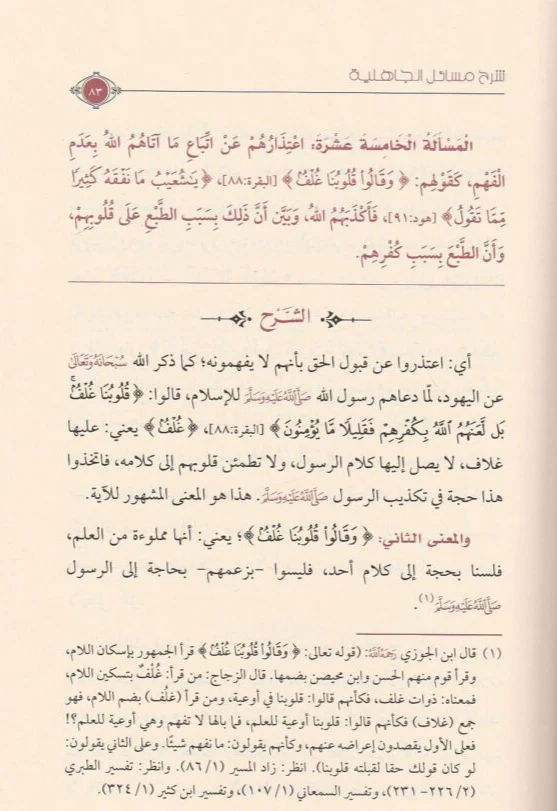 شرح مسائل الجاهلية
٨٣
الْمَسْأَلَةُ الْخَامِسَةُ عَشْرَةَ: اعْتِذَارُهُمْ عَنْ اتِّبَاعِ مَا آتَاهُمُ اللهُ بِعَدَمِ
الْفَهْمِ، كَقَوْلِهِمْ: ﴿وَقَالُوا قُلُوبُنَا غُلْفٌ﴾ [البقرة:٨٨]، ﴿يَشُعَيْبُ مَا نَفْقَهُ كَثِيرًا
مِّمَّا تَقُولُ﴾ [هود:٩١]، فَأَكْذَبَهُمُ اللهُ، وَبَيَّنَ أَنَّ ذَلِكَ بِسَبَبِ الطَّبْعِ عَلَى قُلُوبِهِمْ،
وَأَنَّ الطَّبْعَ بِسَبَبِ كُفْرِهِمْ.
الشَّرْحُ
أي: اعتذروا عن قبول الحق بأنهم لا يفهمونه؛ كما ذكر الله سُبْحَانَهُ وَتَعَالَى
عن اليهود، لمّا دعاهم رسول الله صَلَّى اللَّهُ عَلَيْهِ وَسَلَّمَ للإسلام، قالوا: ﴿قُلُوبُنَا غُلْفٌۢ
بَل لَّعَنَهُمُ اللَّهُ بِكُفْرِهِمْ فَقَلِيلًا مَّا يُؤْمِنُونَ﴾ [البقرة:٨٨]، ﴿غُلْفٌ﴾ يعني: عليها
غلاف، لا يصل إليها كلام الرسول، ولا تطمئن قلوبهم إلى كلامه، فاتخذوا
هذا حجة في تكذيب الرسول صَلَّى اللَّهُ عَلَيْهِ وَسَلَّمَ. هذا هو المعنى المشهور للآية.
والمعنى الثاني: ﴿وَقَالُوا قُلُوبُنَا غُلْفٌ﴾؛ يعني: أنها مملوءة من العلم،
فلسنا بحجة إلى كلام أحد، فليسوا -بزعمهم- بحاجة إلى الرسول
صَلَّى اللَّهُ عَلَيْهِ وَسَلَّمَ(١).
(١) قال ابن الجوزي رَحِمَهُ اللَّهُ: (قوله تعالى: ﴿وَقَالُوا قُلُوبُنَا غُلْفٌ﴾ قرأ الجمهور بإسكان اللام،
وقرأ قوم منهم الحسن وابن محيصن بضمها. قال الزجاج: من قرأ: غُلْفٌ بتسكين اللام،
فمعناه: ذوات غلف، فكأنهم قالوا: قلوبنا في أوعية، ومن قرأ (غلُف) بضم اللام، فهو
جمع (غلاف) فكأنهم قالوا: قلوبنا أوعية للعلم، فما بالها لا تفهم وهي أوعية للعلم؟!
فعلى الأول يقصدون إعراضه عنهم، وكأنهم يقولون: ما نفهم شيئًا. وعلى الثاني يقولون:
لو كان قولك حقا لقبلته قلوبنا). انظر: زاد المسير (١/ ٨٦). وانظر: تفسير الطبري
(٢/ ٢٢٦- ٢٣١)، وتفسير السمعاني (١/ ١٠٧)، وتفسير ابن كثير (١/ ٣٢٤).